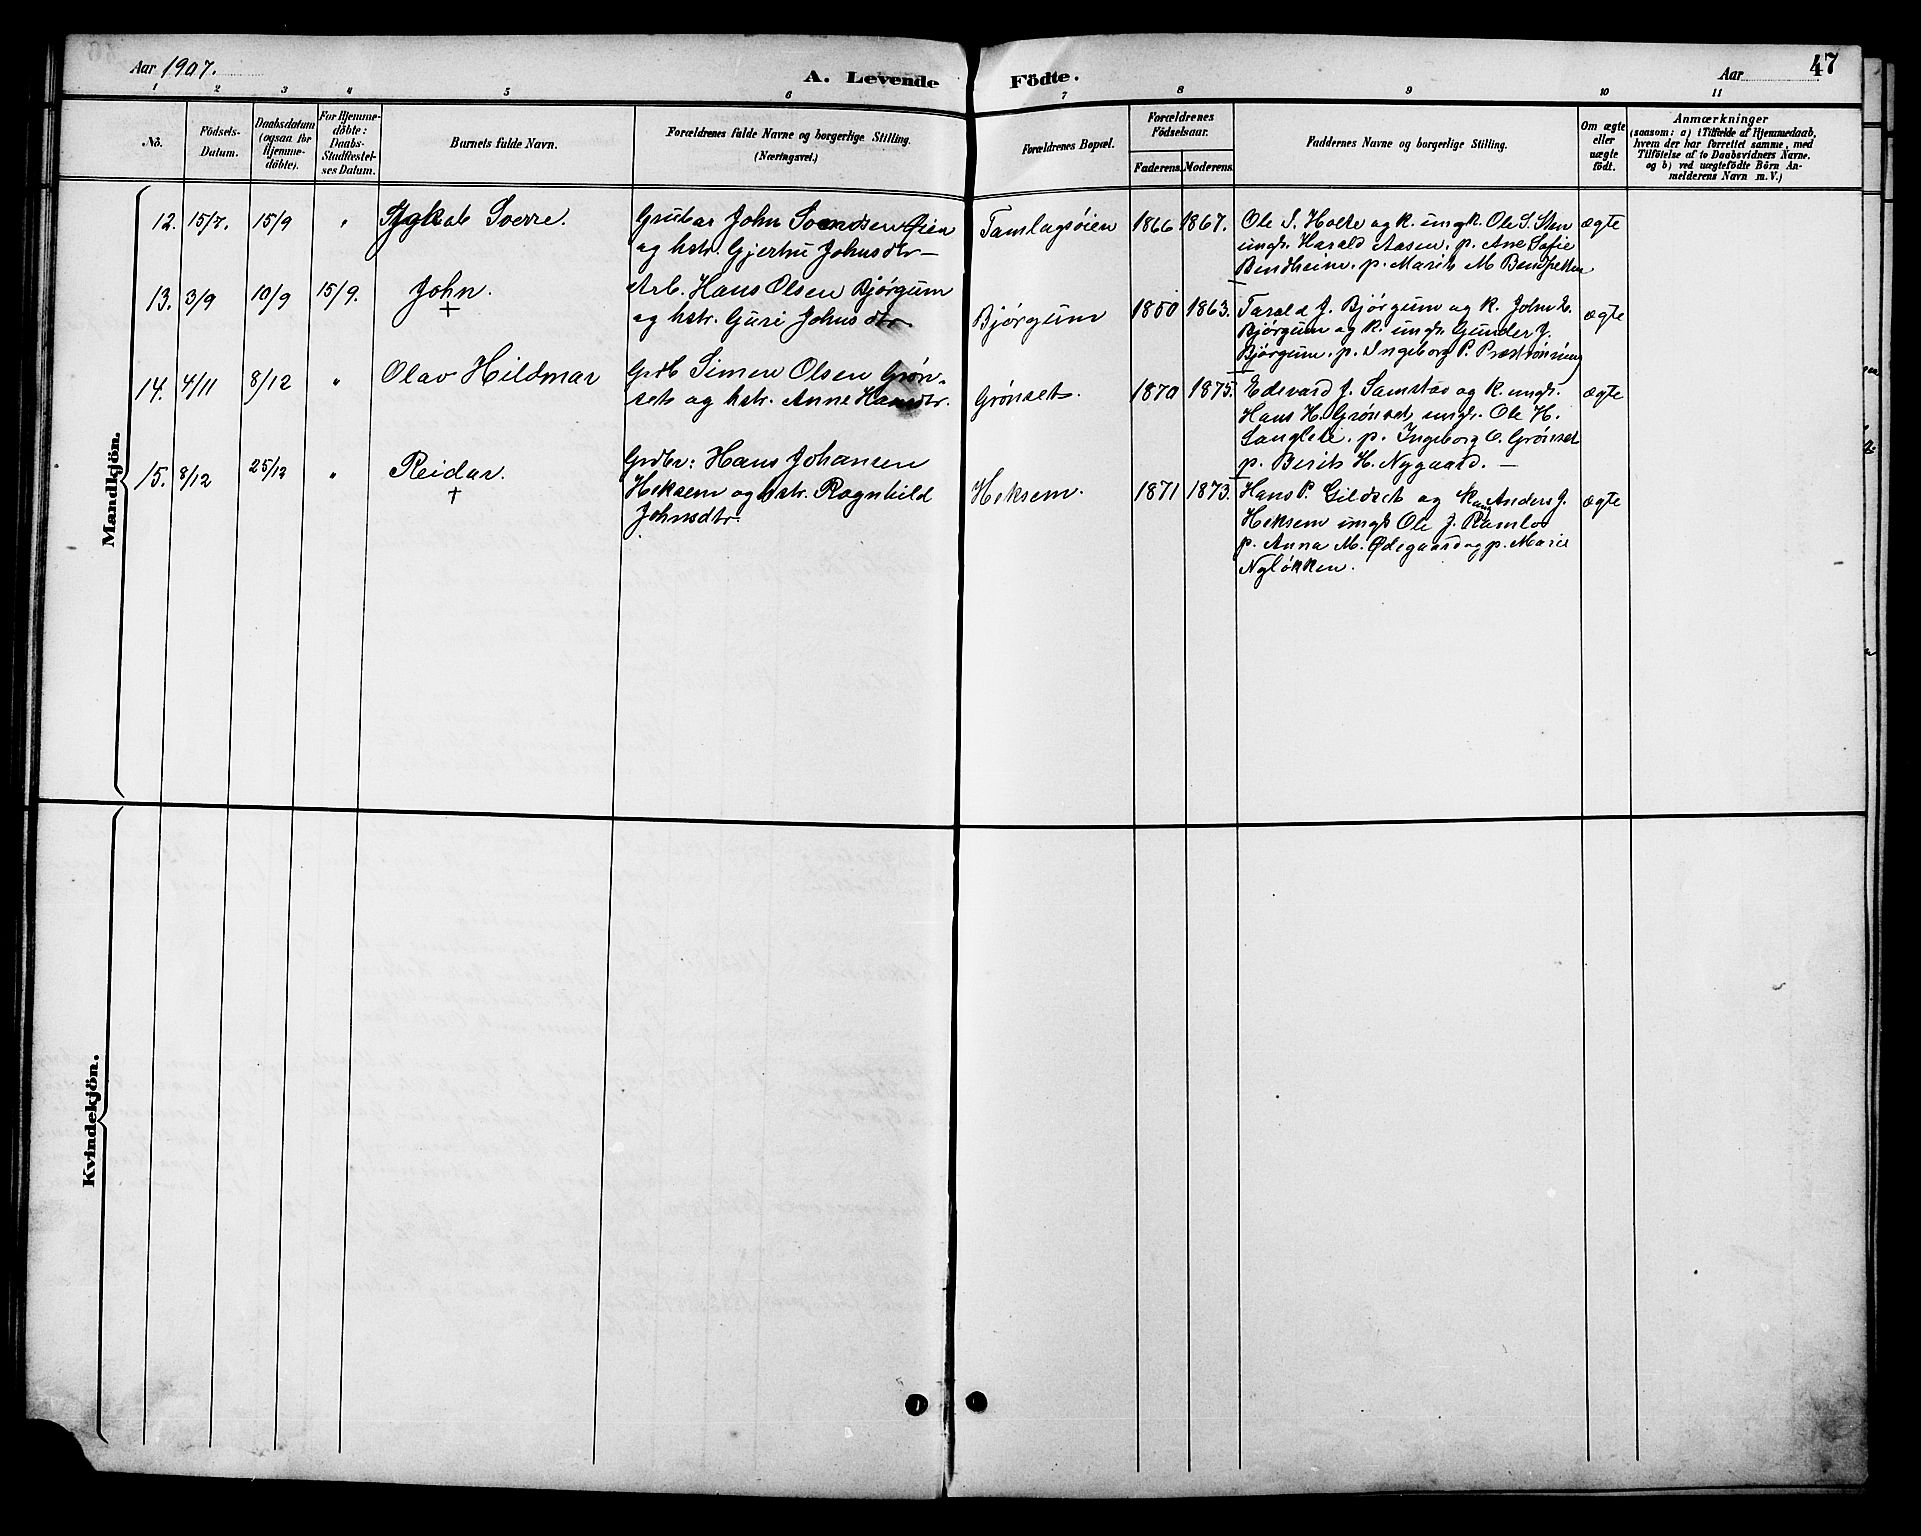 Aar 1907.
A. Levende Födte.
Aar
47
1 2 3 4 5 6 7 8 9 10 11
No.
Födsels-Datum.
Daabsdatum (ogsaa for Hjemme-döbte).
For Hjemme-döbte: Daabs-Stadfæstel-ses Datum.
Barnets fulde Navn.
Forældrenes fulde Navne og borgerlige Stilling. (Næringsvei.)
Forældrenes Bopæl.
Forældrenes Födselsaar.
Faderens. Moderens.
Faddernes Navne og borgerlige Stilling.
Om ægte eller uægte födt.
Anmærkninger
(saasom: a) i Tilfælde af Hjemmedaab,
hvem der har forrettet samme, med
Tilföielse af to Daabsvidners Navne.
og b) ved uægtefödte Börn An-
melderens Navn m. V.)
Mandkjön.
12. 15/7. 15/9 " Sverre.
Grubar John Svendsen Øien
og hstr. Gjertru Johnsdtr —
Tamlagsøien 1866 1867.
Ole S. Holte og k. ungk. Ole S. Sten
ungk. Harald Aasen, p. Ane Sofie
Bendheim. p. Marit M
ægte
13. 3/9 10/9 15/9. John. +
Arb. Hans Olsen Bjørgum
og hstr. Guri Johnsdtr
Bjørgum 1850 1863.
Tarald J. Bjørgum og k. John E.
Bjørgum og k. ungk. Gunder J.
Bjørgum. p. Ingeborg P.
ægte
14. 4/11 8/12 " Olav Hildmar
Grdb Simen Olsen Grøn-
sets og hstr. Anne Hansdtr.
Grønset. 1870 1875.
Edevard J. Samstad og k. ungk.
Hans H. Grønset, ungk. Ole H.
Langlete. p. Ingeborg O. Grønset
p. Berit H. Nygaard. —
ægte
15. 8/12 25/12 " Reidar. +
Grdbr: Hans Johansen
Heksem og hstr. Ragnhild
Johnsdtr.
Heksem. 1871 1873.
Hans P. Gildset og k Anders J.
Heksem ungk Ole J. Ramlo
p. Anna M. Ødegaard og p. Marie
Nyløkken.
ægte
Kvindekjön.